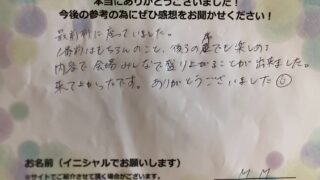 本当にありがとうございました！
今後の参考の為にぜひ感想をお聞かせください！
最前列に座っていました。
1番前はもちろんのこと、後ろの席でも楽しめる
内容で会場みんなで盛り上がることが出来ました。
来てよかったです。ありがとうございました
お名前（イニシャルでお願いします）
※サイトでご紹介させて頂く場合がございます。
M M